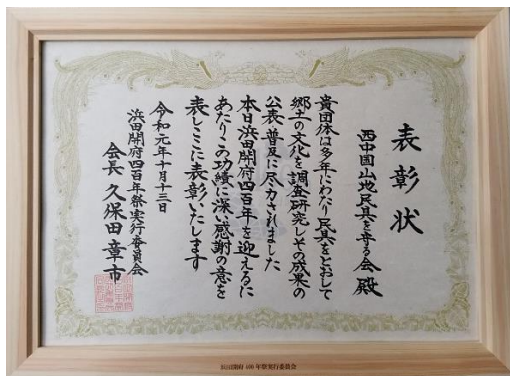 表彰状
西中國山地民具を守る会 殿
貴団体は多年にわたり民具をとおして
郷土の文化を調査研究しその成果の
公表普及に尽力されました
本日浜田開府四百年を迎えるに
あたりこの功績に深い感謝の意を
表しここに表彰いたします
令和元年十月十三日
浜田開府四百年祭実行委員会
会長 久保田章市
浜田開府400年祭実行委員会